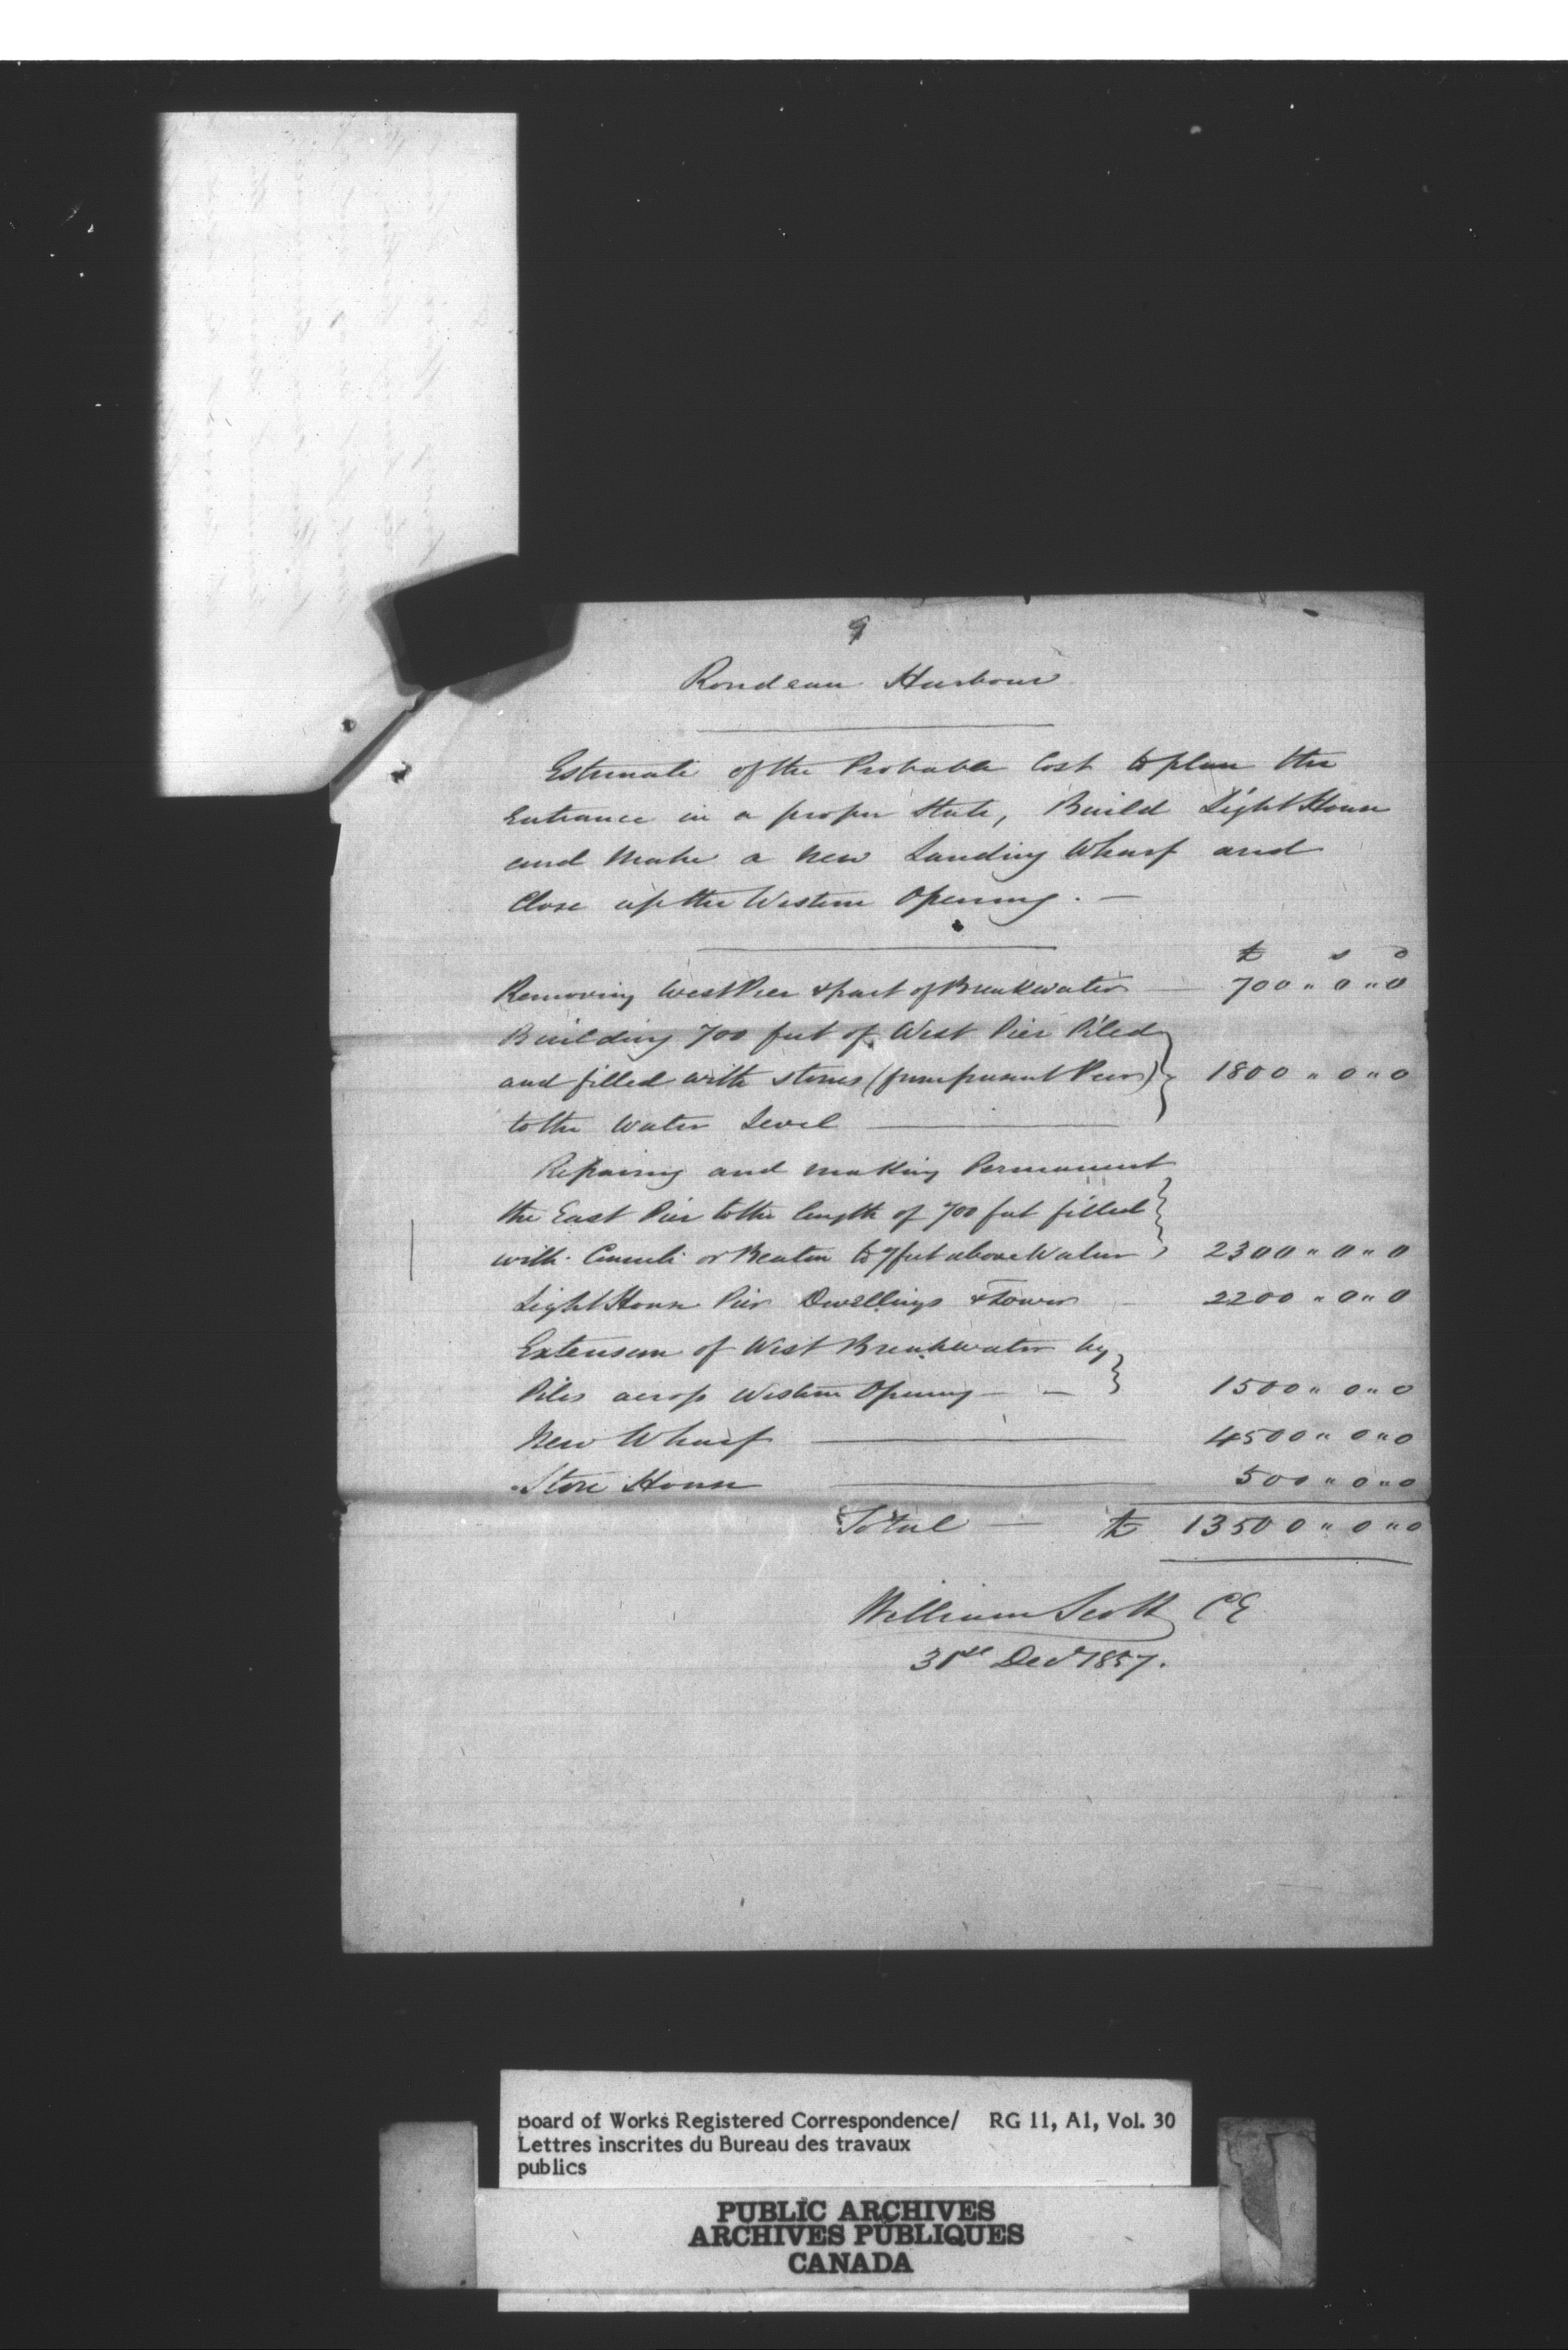 9
Rondeau Harbour
Estimate of the Probable Cost to place the
Entrance in a proper State, Build Light House
and Make a New Landing Wharf and
Close up the Western Opening. —
£ s d
Removing West Pier & part of Breakwater — 700 " 0 " 0
Building 700 feet of West Pier Piled
and filled with stones (from present Piers) 1800 " 0 " 0
to the Water Level —
Repairing and making Permanent
the East Pier to the length of 700 feet filled
with Cement or Beaton to 7 feet above Water 2300 " 0 " 0
Light House Pier Dwellings & Tower — 2200 " 0 " 0
Extension of West Breakwater by
Piles across Western Opening — — 1500 " 0 " 0
New Wharf — 4500 " 0 " 0
Store House — 500 " 0 " 0
Total — £ 13500 " 0 " 0
William Scott CE
31st Decr 1857.
Board of Works Registered Correspondence/ RG 11, A1, Vol. 30
Lettres inscrites du Bureau des travaux
publics
PUBLIC ARCHIVES
ARCHIVES PUBLIQUES
CANADA